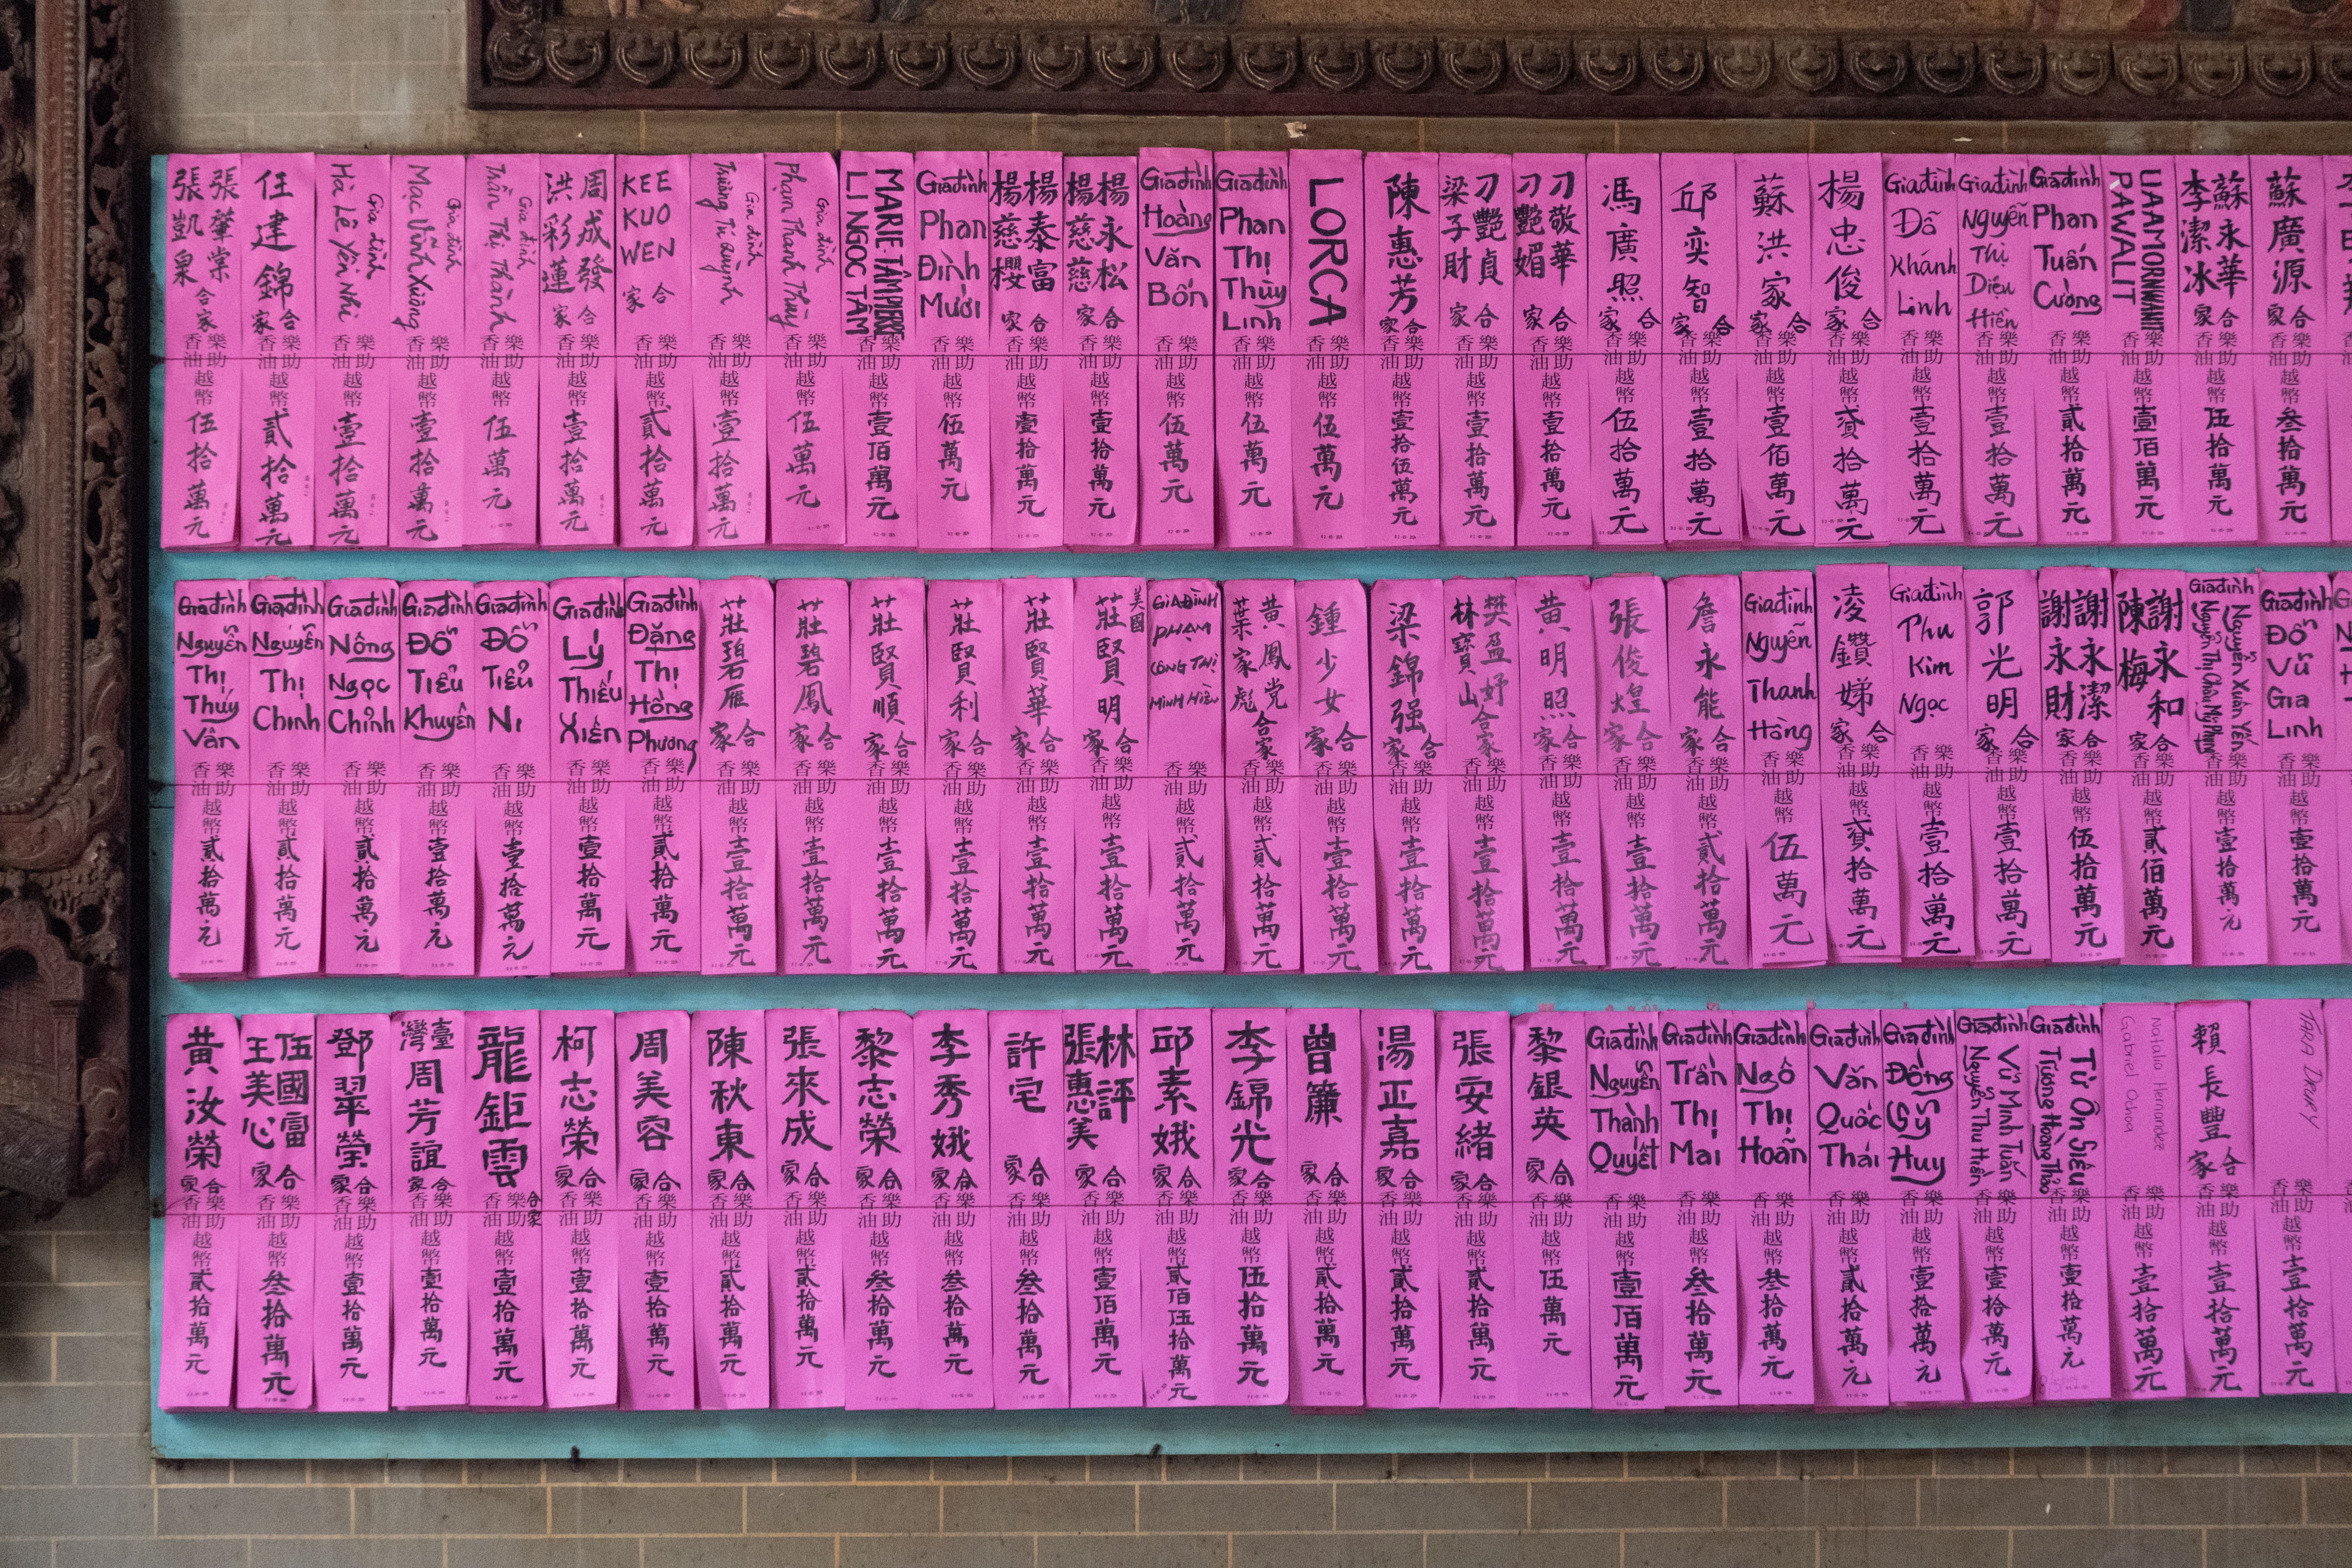 張肇棠
張凱泉
合家
樂助
香油
越幣伍拾萬
任建錦
合家
樂助
香油
越幣貳拾萬元
Gia đình
Hà Lê Yến Nhi
樂助
香油
越幣壹拾萬元
Gia đình
Mạc Vĩnh Xương
樂助
香油
越幣壹拾萬元
Gia đình
Trần Thị Thành
樂助
香油
越幣伍萬元
周成發
洪彩蓮
合家
樂助
香油
越幣壹拾萬元
KEE
KUO
WEN
合家
樂助
香油
越幣貳拾萬元
Gia đình
Trương Tú Quỳnh
樂助
香油
越幣壹拾萬元
Gia đình
Phạm Thanh Thủy
樂助
香油
越幣伍萬元
MARIE TÂM PIERRE
LI NGOC TÂM
樂助
香油
越幣壹佰萬元
Gia đình
Phan
Đình
Mười
樂助
香油
越幣伍萬元
楊泰富
楊慈櫻
合家
樂助
香油
越幣壹拾萬元
楊永松
楊慈慈
合家
樂助
香油
越幣壹拾萬元
Gia đình
Hoàng
Văn
Bốn
樂助
香油
越幣伍萬元
Gia đình
Phan
Thị
Thùy
Linh
樂助
香油
越幣伍萬元
LORCA
樂助
香油
越幣伍萬元
陳惠芳
合家
樂助
香油
越幣壹拾伍萬元
刁艷貞
梁子財
合家
樂助
香油
越幣壹拾萬元
刁敬華
刁艷媚
合家
樂助
香油
越幣壹拾萬元
馮廣照
合家
樂助
香油
越幣伍拾萬元
邱奕智
合家
樂助
香油
越幣壹拾萬元
蘇洪家
合家
樂助
香油
越幣壹佰萬元
楊忠俊
合家
樂助
香油
越幣貳拾萬元
Gia đình
Đỗ
Khánh
Linh
樂助
香油
越幣壹拾萬元
Gia đình
Nguyễn
Thị
Diệu
Hiền
樂助
香油
越幣壹拾萬元
Gia đình
Phan
Tuấn
Cường
樂助
香油
越幣貳拾萬元
UAAMORNWANIT
PAWALIT
樂助
香油
越幣壹佰萬元
蘇永華
李潔冰
合家
樂助
香油
越幣伍拾萬元
蘇廣源
合家
樂助
香油
越幣叁拾萬元
Gia đình
Nguyễn
Thị
Thúy
Vân
樂助
香油
越幣貳拾萬元
Gia đình
Nguyễn
Thị
Chinh
樂助
香油
越幣貳拾萬元
Gia đình
Nông
Ngọc
Chỉnh
樂助
香油
越幣貳拾萬元
Gia đình
Đỗ
Tiểu
Khuyên
樂助
香油
越幣壹拾萬元
Gia đình
Đỗ
Tiểu
Ni
樂助
香油
越幣壹拾萬元
Gia đình
Lý
Thiếu
Xiến
樂助
香油
越幣壹拾萬元
Gia đình
Đặng
Thị
Hồng
Phương
樂助
香油
越幣貳拾萬元
莊碧雁
合家
樂助
香油
越幣壹拾萬元
莊碧鳳
合家
樂助
香油
越幣壹拾萬元
莊賢順
合家
樂助
香油
越幣壹拾萬元
莊賢利
合家
樂助
香油
越幣壹拾萬元
莊賢華
合家
樂助
香油
越幣壹拾萬元
美國
莊賢明
合家
樂助
香油
越幣壹拾萬元
GIA ĐÌNH
PHẠM
CÔNG THỊ
MINH HIẾU
樂助
香油
越幣貳拾萬元
黃鳳党
葉家彪
合家
樂助
香油
越幣貳拾萬元
鍾少女
合家
樂助
香油
越幣壹拾萬元
梁錦强
合家
樂助
香油
越幣壹拾萬元
樊盈妤
林寶山
合家
樂助
香油
越幣壹拾萬元
黃明照
合家
樂助
香油
越幣壹拾萬元
張俊煌
合家
樂助
香油
越幣壹拾萬元
詹永能
合家
樂助
香油
越幣貳拾萬元
Gia đình
Nguyễn
Thanh
Hằng
樂助
香油
越幣伍萬元
凌鑽娣
合家
樂助
香油
越幣貳拾萬元
Gia đình
Phu
Kim
Ngọc
樂助
香油
越幣壹拾萬元
郭光明
合家
樂助
香油
越幣壹拾萬元
謝永潔
謝永財
合家
樂助
香油
越幣伍拾萬元
謝永和
陳梅
合家
樂助
香油
越幣貳佰萬元
Gia đình
Nguyễn Xuân Yến
Nguyễn Thị Châu Mỹ Phụng
樂助
香油
越幣壹拾萬元
Gia đình
Đỗ
Vũ
Gia
Linh
樂助
香油
越幣壹拾萬元
黃汝榮
合家
樂助
香油
越幣貳拾萬元
伍國雷
王美心
合家
樂助
香油
越幣叁拾萬元
鄧翠瑩
合家
樂助
香油
越幣壹拾萬元
臺灣
周芳誼
合家
樂助
香油
越幣壹拾萬元
龍鉅雲
合家
樂助
香油
越幣壹拾萬元
柯志榮
合家
樂助
香油
越幣壹拾萬元
周美容
合家
樂助
香油
越幣壹拾萬元
陳秋東
合家
樂助
香油
越幣貳拾萬元
張來成
合家
樂助
香油
越幣貳拾萬元
黎志榮
合家
樂助
香油
越幣叁拾萬元
李秀娥
合家
樂助
香油
越幣叁拾萬元
許宅
合家
樂助
香油
越幣叁拾萬元
林評
張惠美
合家
樂助
香油
越幣壹佰萬元
邱素娥
合家
樂助
香油
越幣貳佰伍拾萬元
李錦光
合家
樂助
香油
越幣伍拾萬元
曾簾
合家
樂助
香油
越幣貳拾萬元
湯正嘉
合家
樂助
香油
越幣貳拾萬元
張安緒
合家
樂助
香油
越幣貳拾萬元
黎銀英
合家
樂助
香油
越幣伍萬元
Gia đình
Nguyễn
Thành
Quyết
樂助
香油
越幣壹佰萬元
Gia đình
Trần
Thị
Mai
樂助
香油
越幣叁拾萬元
Gia đình
Ngô
Thị
Hoãn
樂助
香油
越幣叁拾萬元
Gia đình
Văn
Quốc
Thái
樂助
香油
越幣貳拾萬元
Gia đình
Đống
Sỹ
Huy
樂助
香油
越幣壹拾萬元
Gia đình
Vũ Minh Tuấn
Nguyễn Thu Hiền
樂助
香油
越幣壹拾萬元
Gia đình
Từ Ôn Siêu
Trương Hoàng Thảo
樂助
香油
越幣壹拾萬元
Natalia Hernandez
Gabriel Ochoa
樂助
香油
越幣壹拾萬元
賴長豐
合家
樂助
香油
越幣壹拾萬元
TARA DRURY
樂助
香油
越幣壹拾萬元